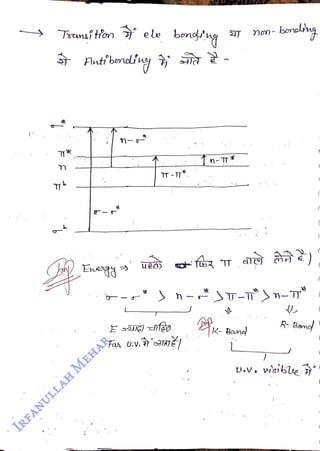 → Transition में ele bonding या non-bonding
से Antibonding में जाते है -
σ*
n-σ*
π*
n-π*
n
π-π*
πb
σ-σ*
σb
Imp Energy ⇒ पहले σ फिर π वाले लेते है)
σ-σ* > n-σ* > π-π* > n-π*
E ज्यादा चाहिए
Imp K-Band
R-Band
Far U.V. में आता है/
U.V. visible में
IRFANULLAH MEHAR